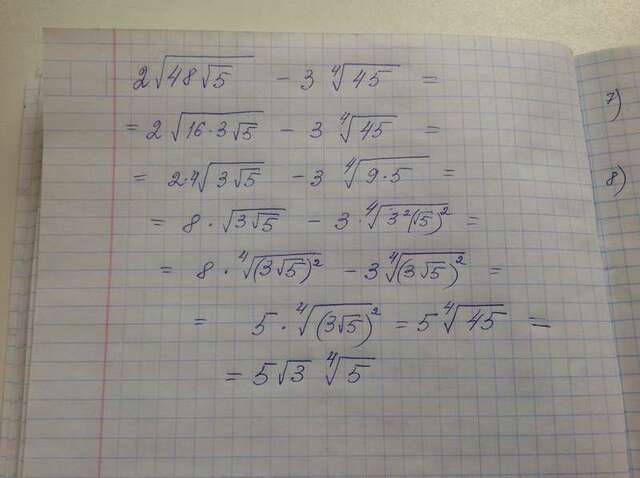 2√(48√5) − 3 ∜45 =
= 2 √(16·3√5) − 3 ∜45 =
= 2·4√(3√5) − 3 ∜(9·5) =
= 8 · √(3√5) − 3·∜(3²(√5)²) =
= 8 · ∜((3√5)²) − 3∜((3√5)²) =
= 5 · ∜((3√5)²) = 5 ∜45 =
= 5√3 ∜5
7)
8)